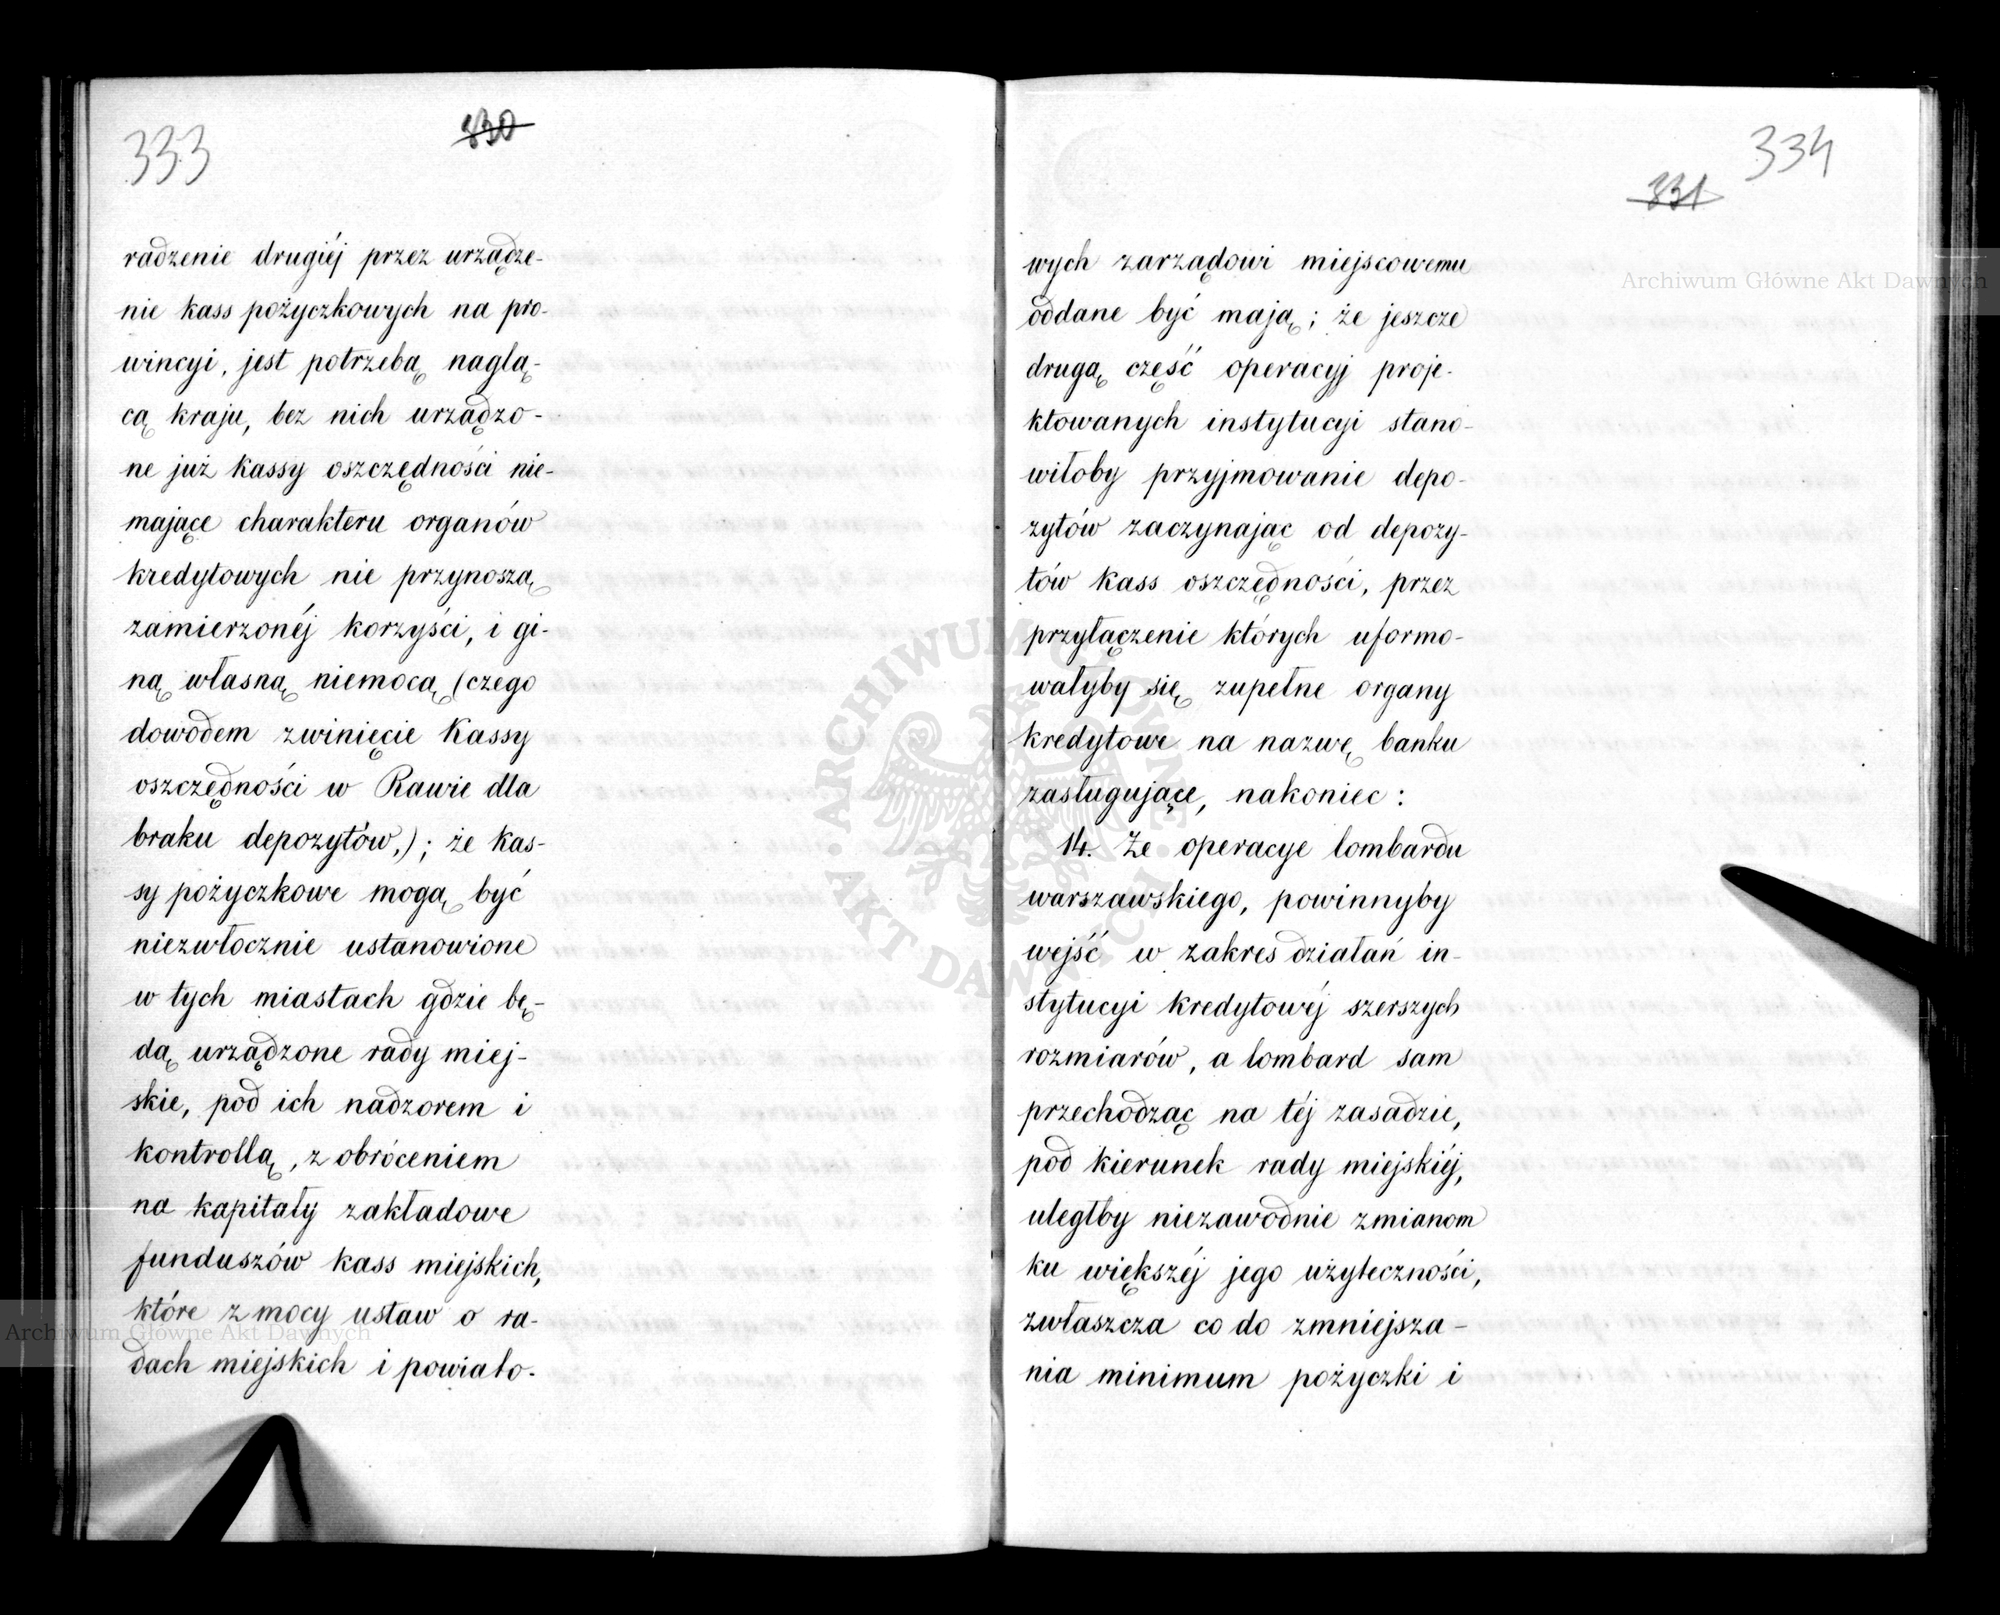 333
830
radzenie drugiéj przez urządze-
nie kass pożyczkowych na pro-
wincyi, jest potrzebą naglą-
cą kraju, bez nich urządzo-
ne już kassy oszczędności nie-
mające charakteru organów
kredytowych nie przynoszą
zamierzonéj korzyści, i gi-
ną własną niemocą (czego
dowodem zwinięcie Kassy
oszczędności w Rawie dla
braku depozytów,); że kas-
sy pożyczkowe mogą być
niezwłocznie ustanowione
w tych miastach gdzie bę-
dą urządzone rady miej-
skie, pod ich nadzorem i
kontrollą, z obróceniem
na kapitały zakładowe
funduszów kass miejskich,
które z mocy ustaw o ra-
dach miejskich i powiato-
334
831
wych zarządowi miejscowemu
oddane być mają; że jeszcze
drugą część operacyj proje-
ktowanych instytucyi stano-
wiłoby przyjmowanie depo-
zytów zaczynając od depozy-
tów kass oszczędności, przez
przyłączenie których uformo-
wałyby się zupełne organy
kredytowe na nazwę banku
zasługujące, nakoniec:
14. Że operacye lombardu
warszawskiego, powinnyby
wejść w zakres działań in-
stytucyi kredytowéj szerszych
rozmiarów, a lombard sam
przechodząc na téj zasadzie,
pod kierunek rady miejskiéj,
uległby niezawodnie zmianom
ku większéj jego użyteczności,
zwłaszcza co do zmniejsza-
nia minimum pożyczki i
Archiwum Główne Akt Dawnych
Archiwum Główne Akt Dawnych
ARCHIWUM GŁÓWNE AKT DAWNYCH